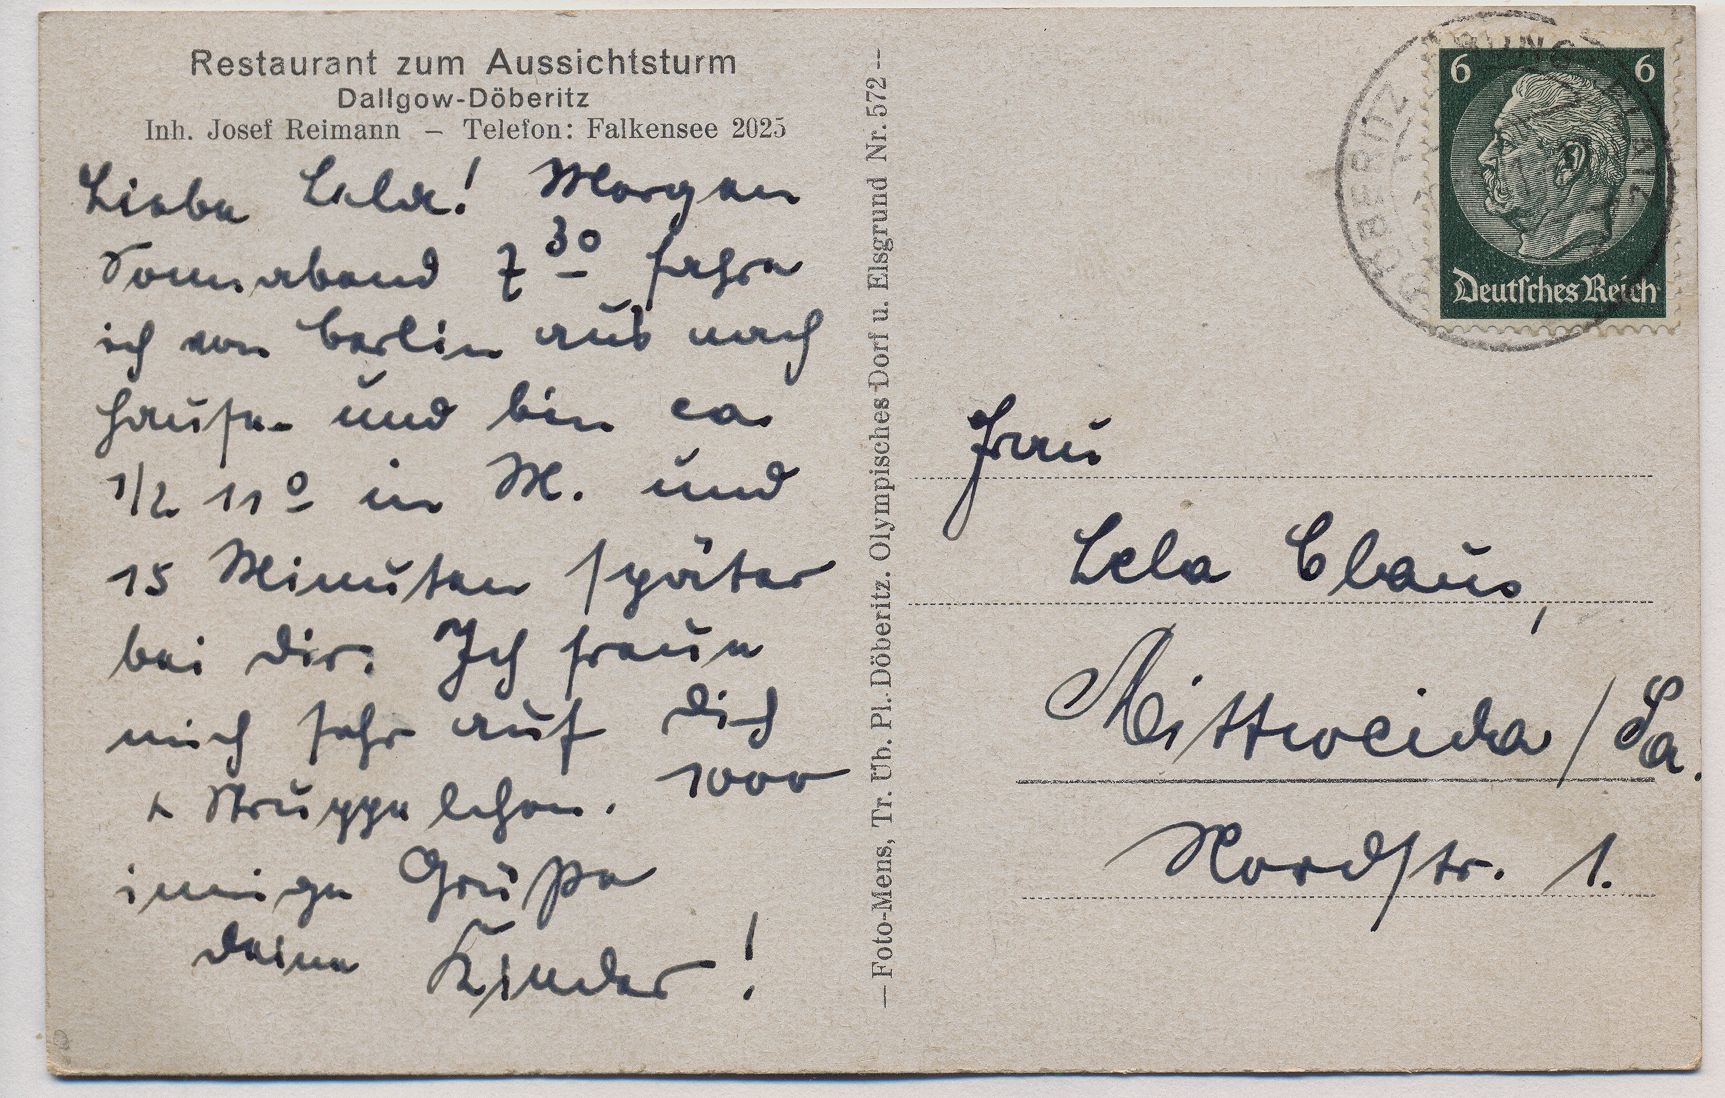 Restaurant zum Aussichtsturm
Dallgow-Döberitz
Inh. Josef Reimann – Telefon: Falkensee 2025
Liebe Lela! Morgen
Sonnabend 7³⁰ fahre
ich von Berlin aus nach
Hause und bin ca.
1/2 11⁰ in M. und
15 Minuten später
bei dir. Ich freue
mich sehr auf dich
+ Struppelchen. 1000
innige Grüße
deine Kinder!
— Foto-Mens, Tr. Üb. Pl. Döberitz. Olympisches Dorf u. Elsgrund Nr. 572 —
DÖBERITZ
6 6
Deutsches Reich
Frau
Lela Claus,
Mittweida / Sa.
Nordstr. 1.